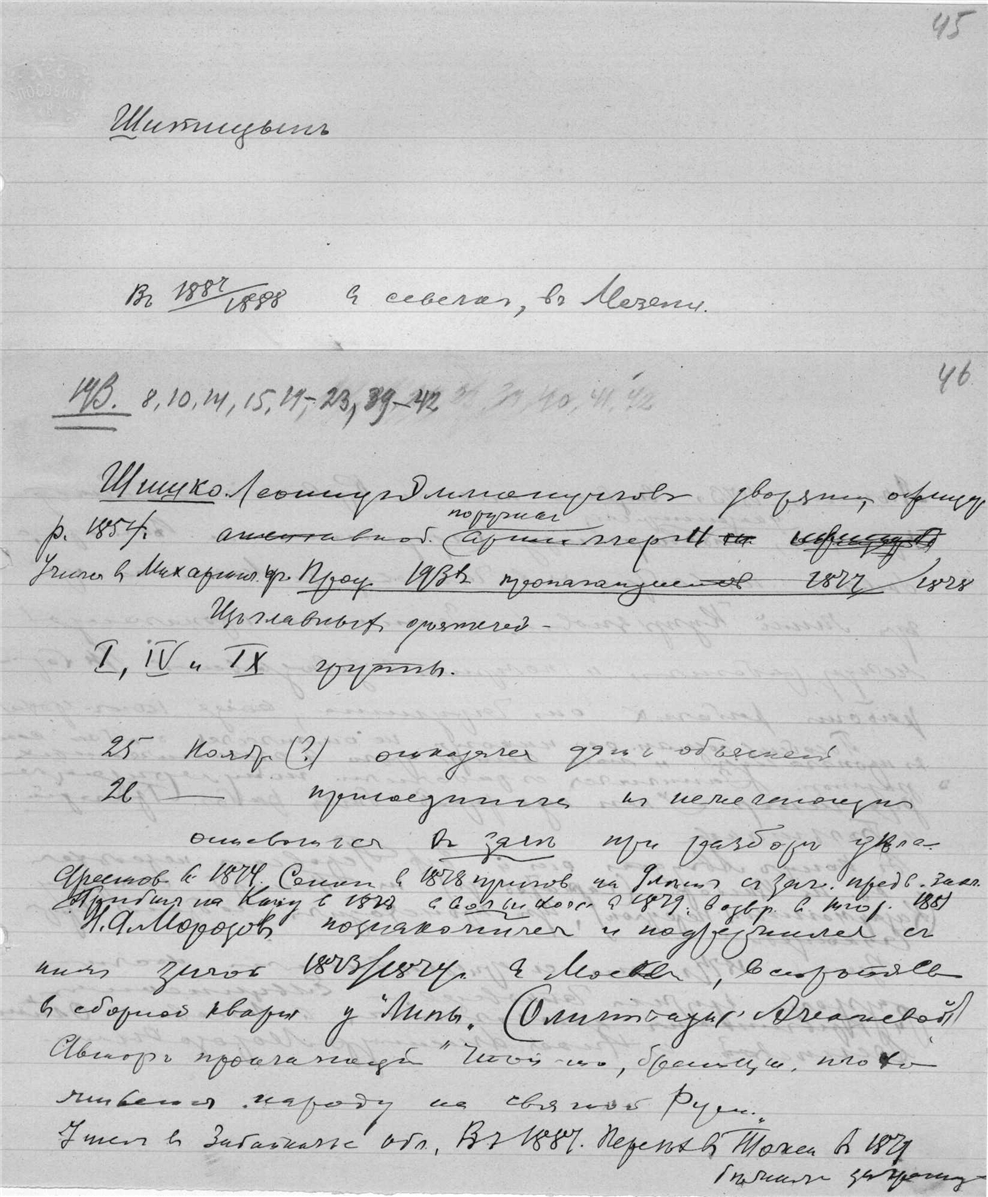 45
Шитицынъ
Въ 1887/1888 в северн, въ Мезени.
46
193. 8, 10, 14, 15, 19–23, 39–42
Шишко Леонид Эммануилов дворянин, офицер
р. 1854. отставной поручик артиллерии
Училс в Михаил. арт. Проц. 193х пропагандистов 1877/1878
Из главных деятелей –
I, IV и IX группы.
25 Ноябр (?) отказался дать объяснен
26 — присоединился к нежелающим
оставаться в зале при разборе дела
Арестов в 1874, Сенат в 1878 пригов на 9 лет с зач. предв. закл.
Прибыл на Кару в 1878 в вольн ком в 1879. возвр. в тюр. 1881
Н. А. Морозов познакомился и подружился с
ним зимой 1873/1874. в Москве, встретясь
в сборной кварт у "Липы" (Олимпиады Алексеевой)
Автор прокламаций "Чтой-то, братцы, плохо
живется народу на святой Руси".
У них в Забайкальс обл, Въ 1887. Перев в Томск в 1889
бежал за границу